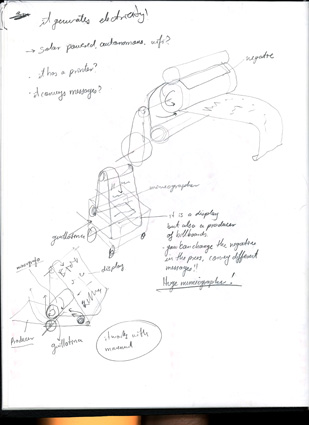 it generates electricity!
→ Solar powered, autonomous, wifi?
· it has a printer?
· it conveys messages?
negative
mimeographer
guillotina
it is a display
but also a producer
of billboards.
· you can change the negatives
in the press, convey different
messages!!
Huge mimeographer!
display
Producer
guillotina
it works with